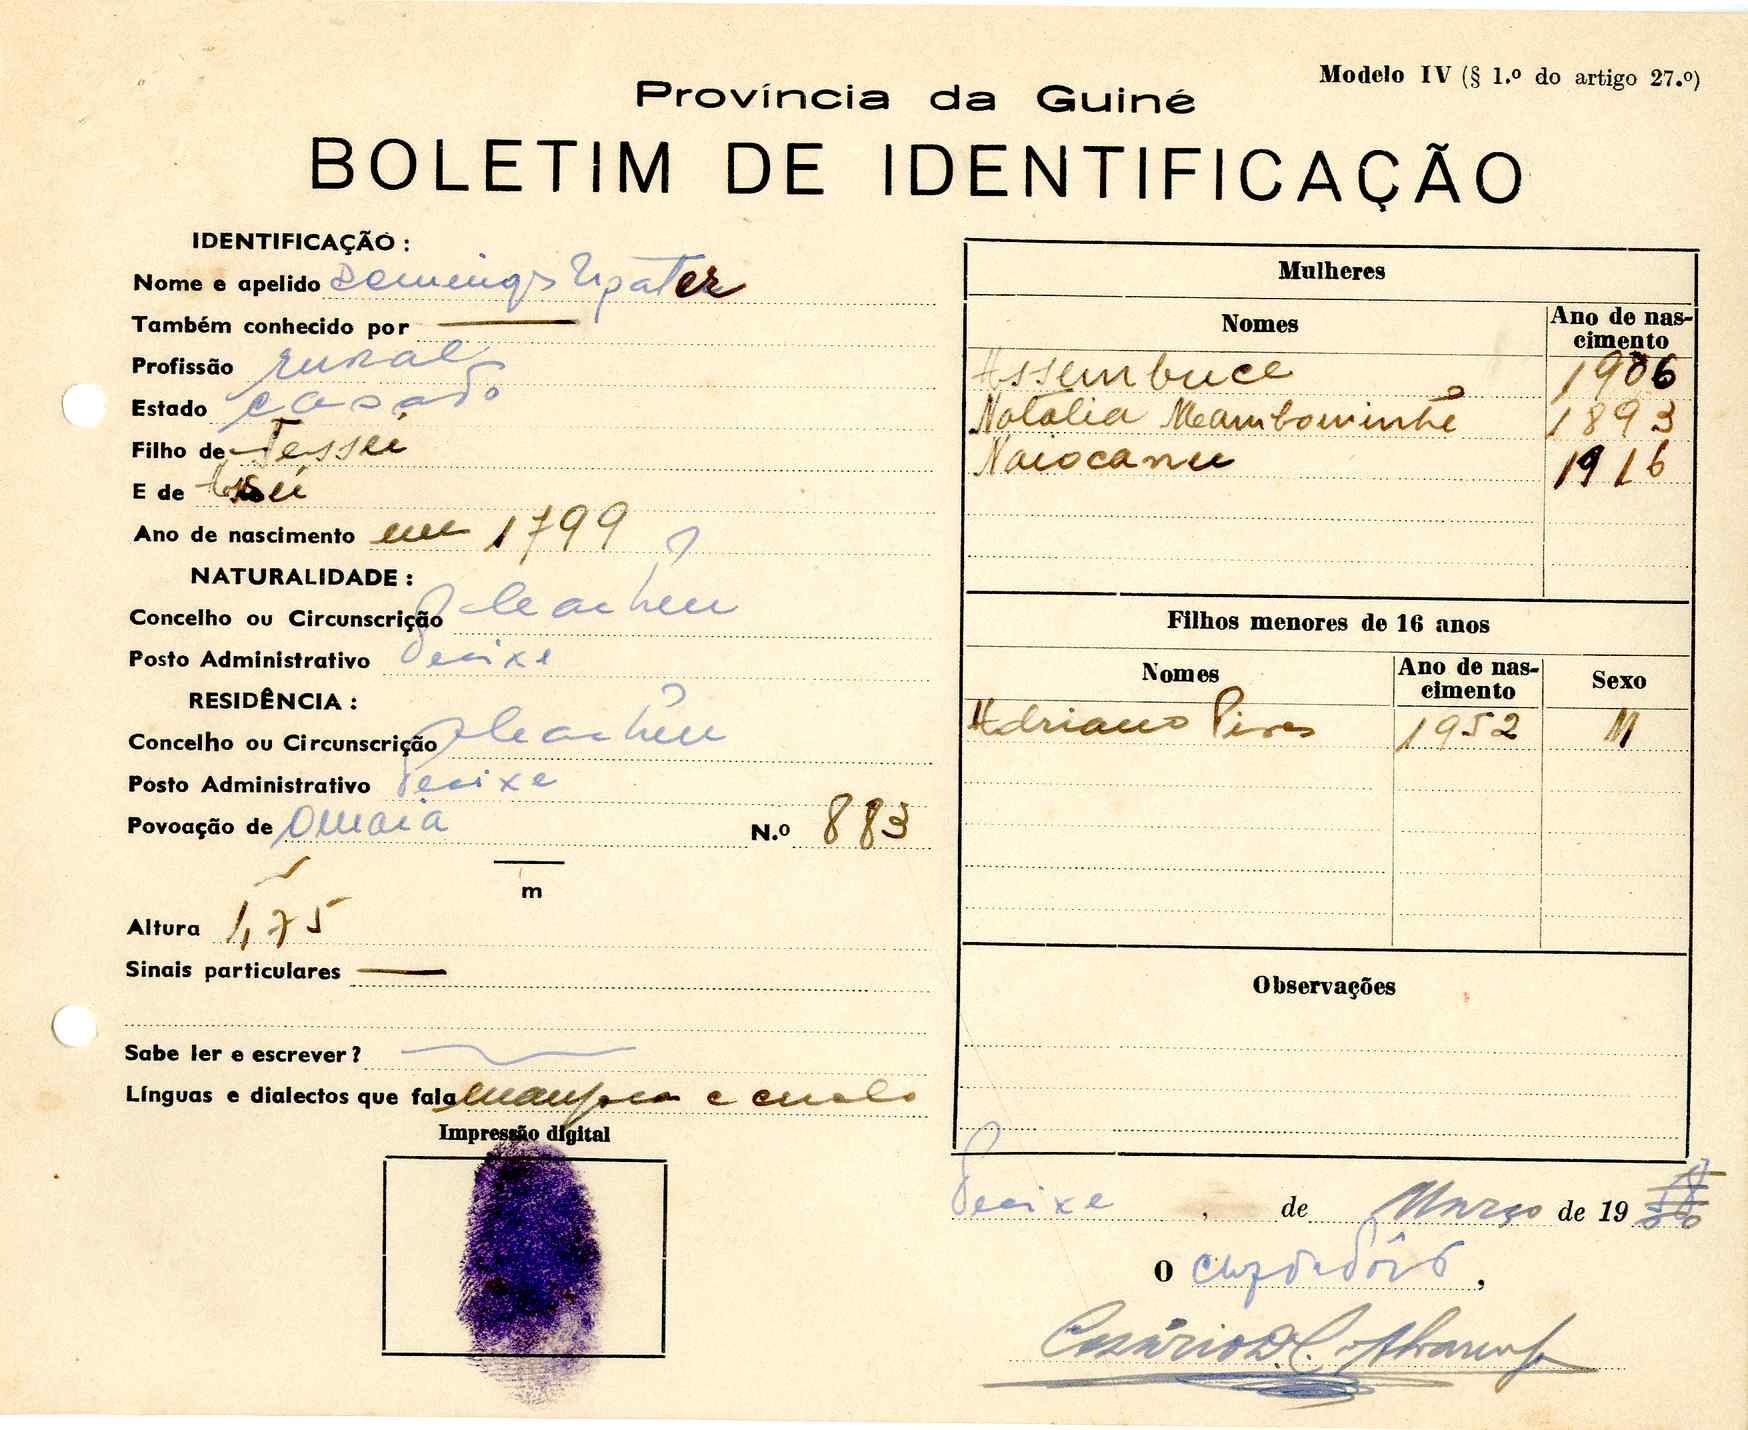 Modelo IV (§ 1.º do artigo 27.º)
Província da Guiné
BOLETIM DE IDENTIFICAÇÃO
IDENTIFICAÇÃO:
Nome e apelido Domingos
Também conhecido por ———
Profissão rural
Estado casado
Filho de Jessui
E de
Ano de nascimento em 1799
NATURALIDADE:
Concelho ou Circunscrição
Posto Administrativo Pecixe
RESIDÊNCIA:
Concelho ou Circunscrição
Posto Administrativo Pecixe
Povoação de N.º 883
m
Altura 1,75
Sinais particulares ———
Sabe ler e escrever?
Línguas e dialectos que fala e
Impressão digital
Mulheres
Nomes Ano de nas-
cimento
Assembuce 1906
Natalia 1893
Naiocanu 1916
Filhos menores de 16 anos
Nomes Ano de nas-
cimento Sexo
Adriano Pires 1952 M
Observações
Pecixe, de Março de 19
O